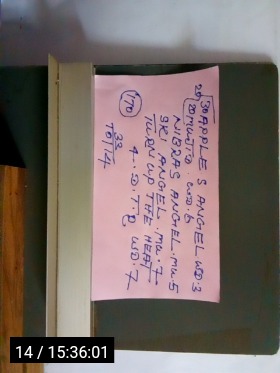 20 30 APPLE S ANGEL WD.3
20 MUJTID. WD.6
NIBRAS ANGEL.MW5
SRI ANGEL.MW.7
TURN UP THE HEAT
4. D.T.R WD.7
170
33
TO 14
14 / 15:36:01